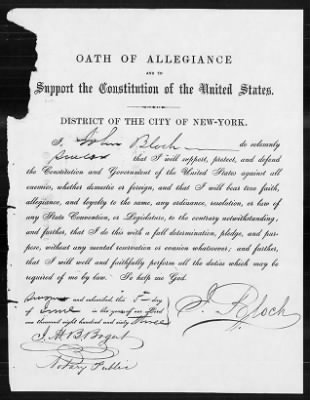 OATH OF ALLEGIANCE
AND TO
Support the Constitution of the United States.
DISTRICT OF THE CITY OF NEW-YORK.
I, John Bloch do solemnly
swear that I will support, protect, and defend
the Constitution and Government of the United States against all
enemies, whether domestic or foreign, and that I will bear true faith,
allegiance, and loyalty to the same, any ordinance, resolution, or law of
any State Convention, or Legislature, to the contrary notwithstanding;
and further, that I do this with a full determination, pledge, and pur-
pose, without any mental reservation or evasion whatsoever; and further,
that I will well and faithfully perform all the duties which may be
required of me by law. So help me God.
Sworn and subscribed this 5th day
of June in the year of our Lord
one thousand eight hundred and sixty three
J. Bloch
J. H. B. Bogert
Notary Public